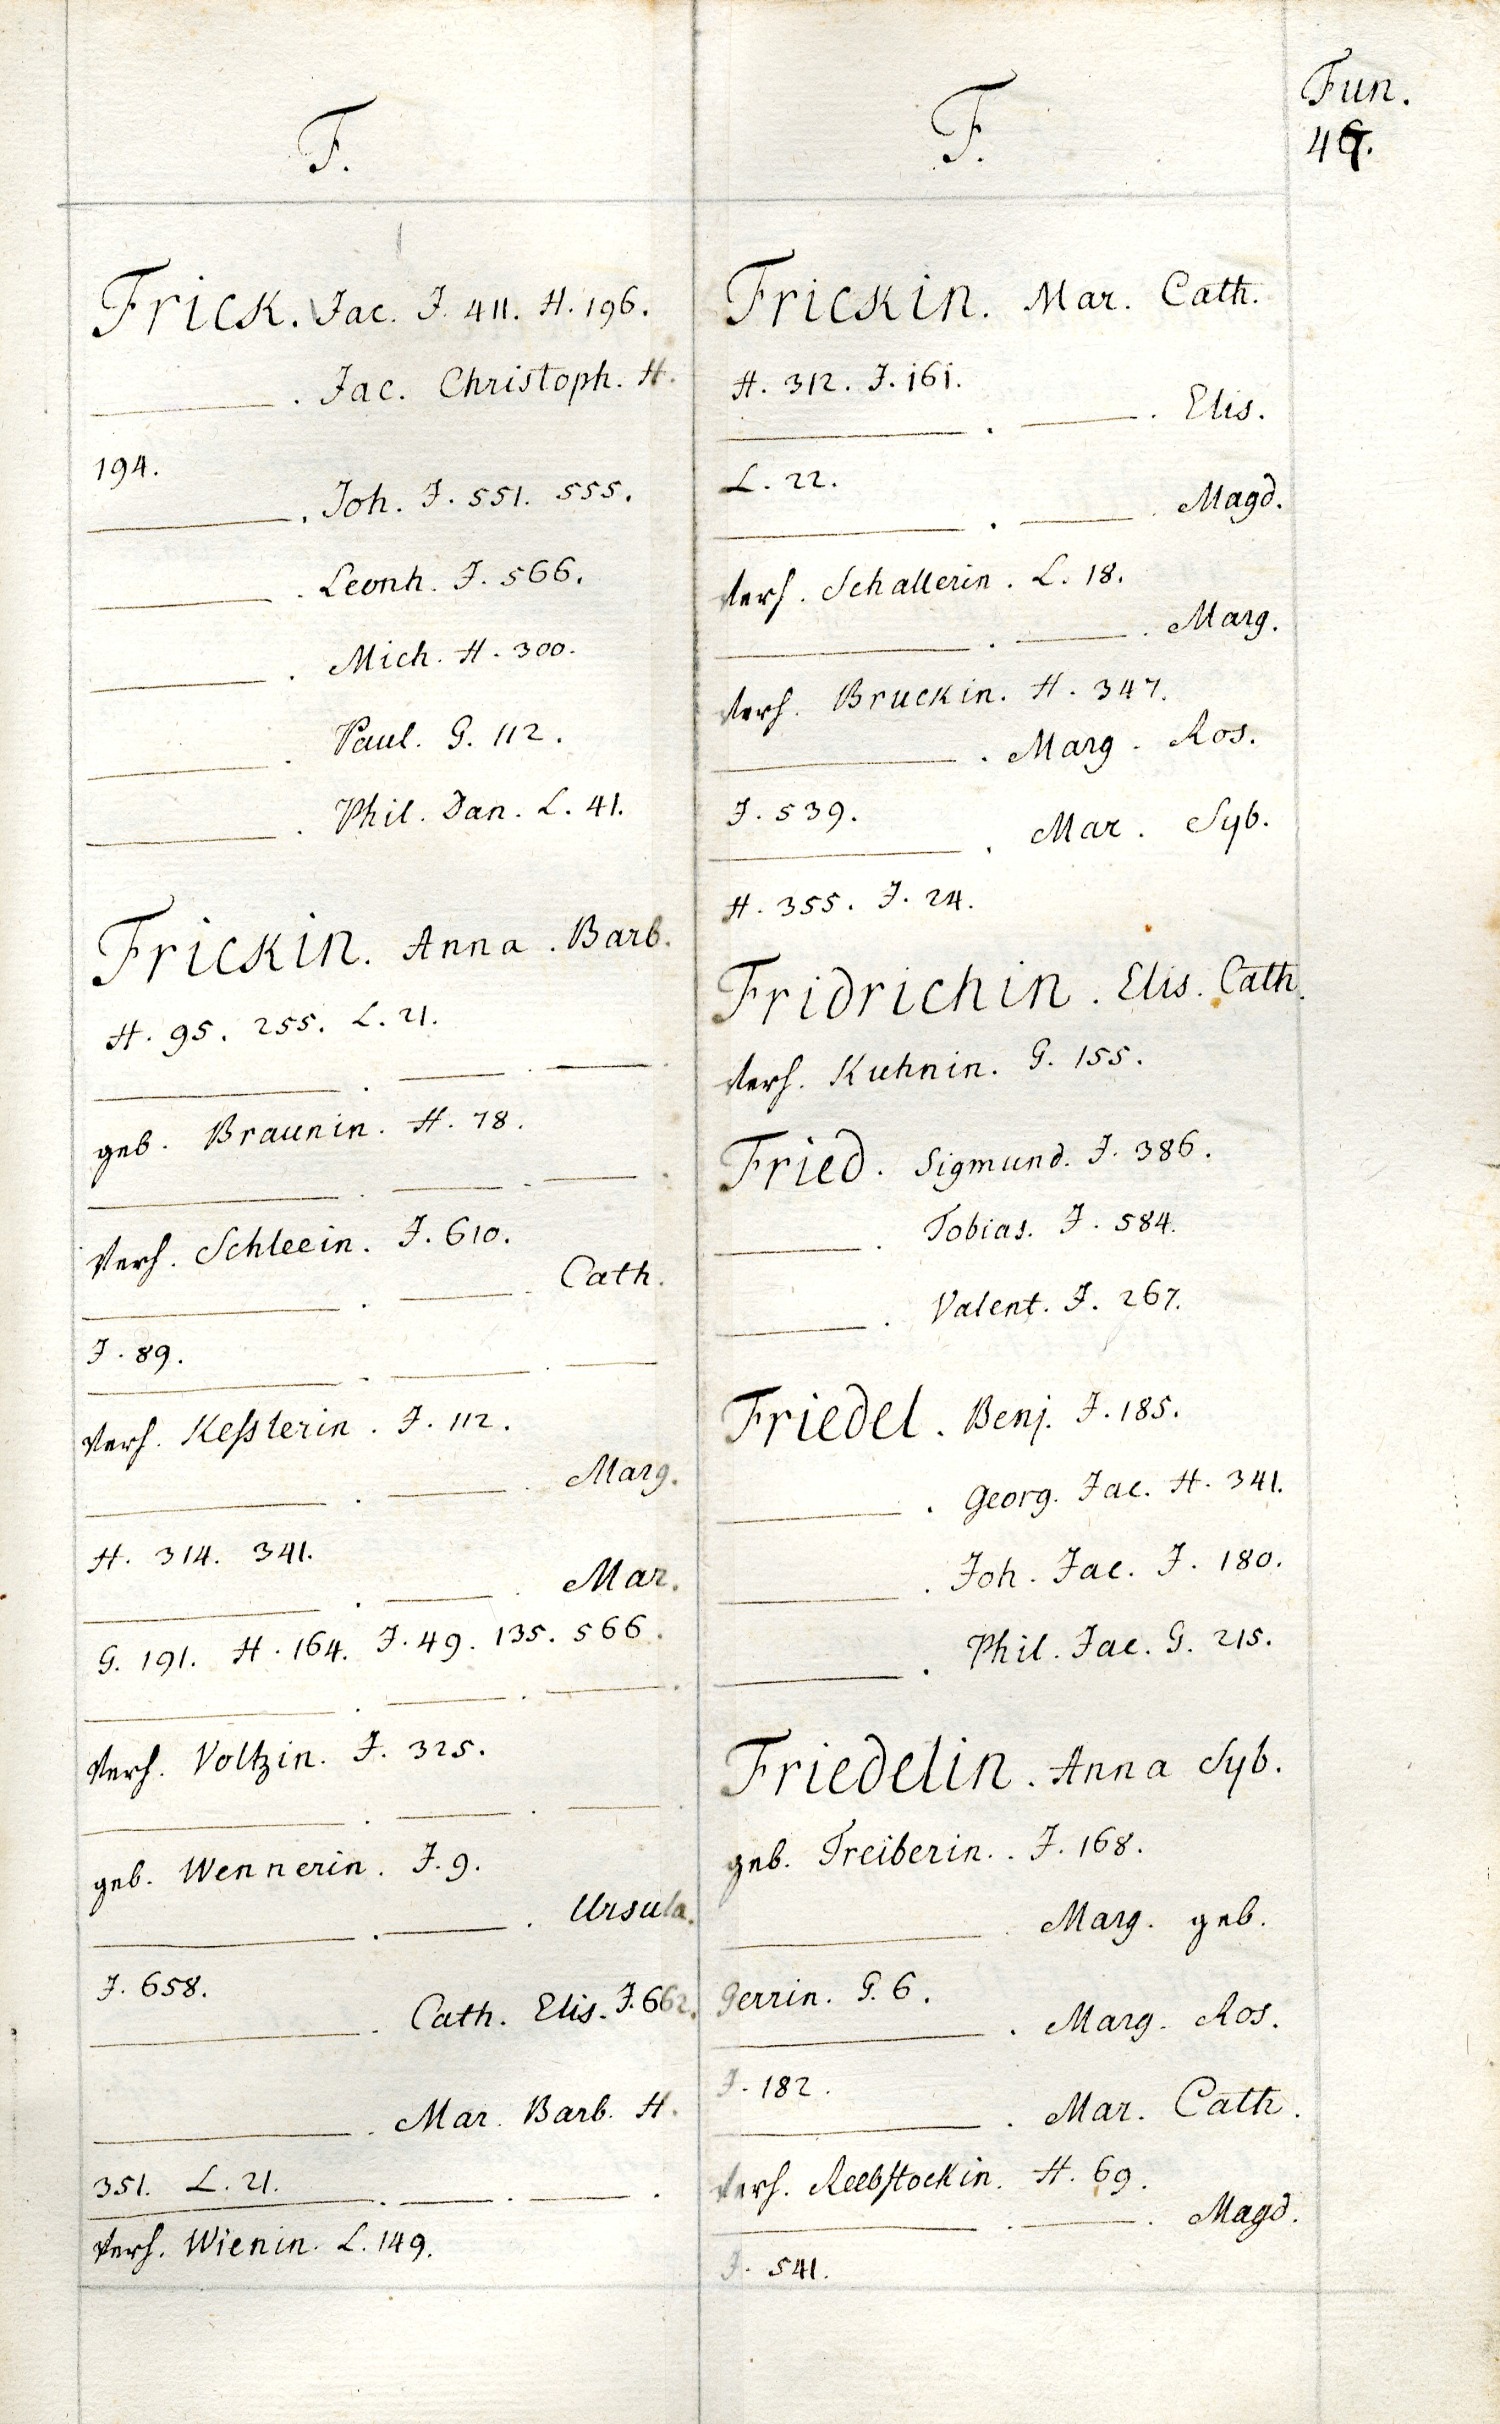 F.
Frick. Jac. J. 411. H. 196.
———. Jac. Christoph. H.
194.
———. Joh. J. 551. 555.
———. Leonh. J. 566.
———. Mich. H. 300.
———. Paul. G. 112.
———. Phil. Dan. L. 41.
Frickin. Anna. Barb.
H. 95. 255. L. 21.
———. ———. ———.
geb. Braunin. H. 78.
———. ———. ———.
Verh. Schleein. J. 610.
———. ———. Cath.
J. 89.
———. ———. ———
Verh. Keßlerin. J. 112.
———. ———. Marg.
H. 314. 341.
———. ———. Mar.
G. 191. H. 164. J. 49. 135. 566.
———. ———. ———.
Verh. Voltzin. J. 325.
———. ———. ———.
geb. Wennerin. J. 9.
———. ———. Ursula.
J. 658.
———. Cath. Elis. J. 662.
———. Mar. Barb. H.
351. L. 21.
———. ———. ———.
Verh. Wienin. L. 149.
F.
Frickin. Mar. Cath.
H. 312. J. 161.
———. ———. Elis.
L. 22.
———. ———. Magd.
Verh. Schallerin. L. 18.
———. ———. Marg.
Verh. Bruckin. H. 347.
———. Marg. Ros.
J. 539.
———. Mar. Syb.
H. 355. J. 24.
Fridrichin. Elis. Cath.
Verh. Kuhnin. G. 155.
Fried. Sigmund. J. 386.
———. Tobias. J. 584.
———. Valent. J. 267.
Friedel. Benj. J. 185.
———. Georg. Jac. H. 341.
———. Joh. Jac. J. 180.
———. Phil. Jac. G. 215.
Friedelin. Anna Syb.
geb. Treiberin. J. 168.
———. Marg. geb.
Gerrin. G. 6.
———. Marg. Ros.
J. 182.
———. Mar. Cath.
Verh. Reebstockin. H. 69.
———. ———. Magd.
J. 541.
Fun.